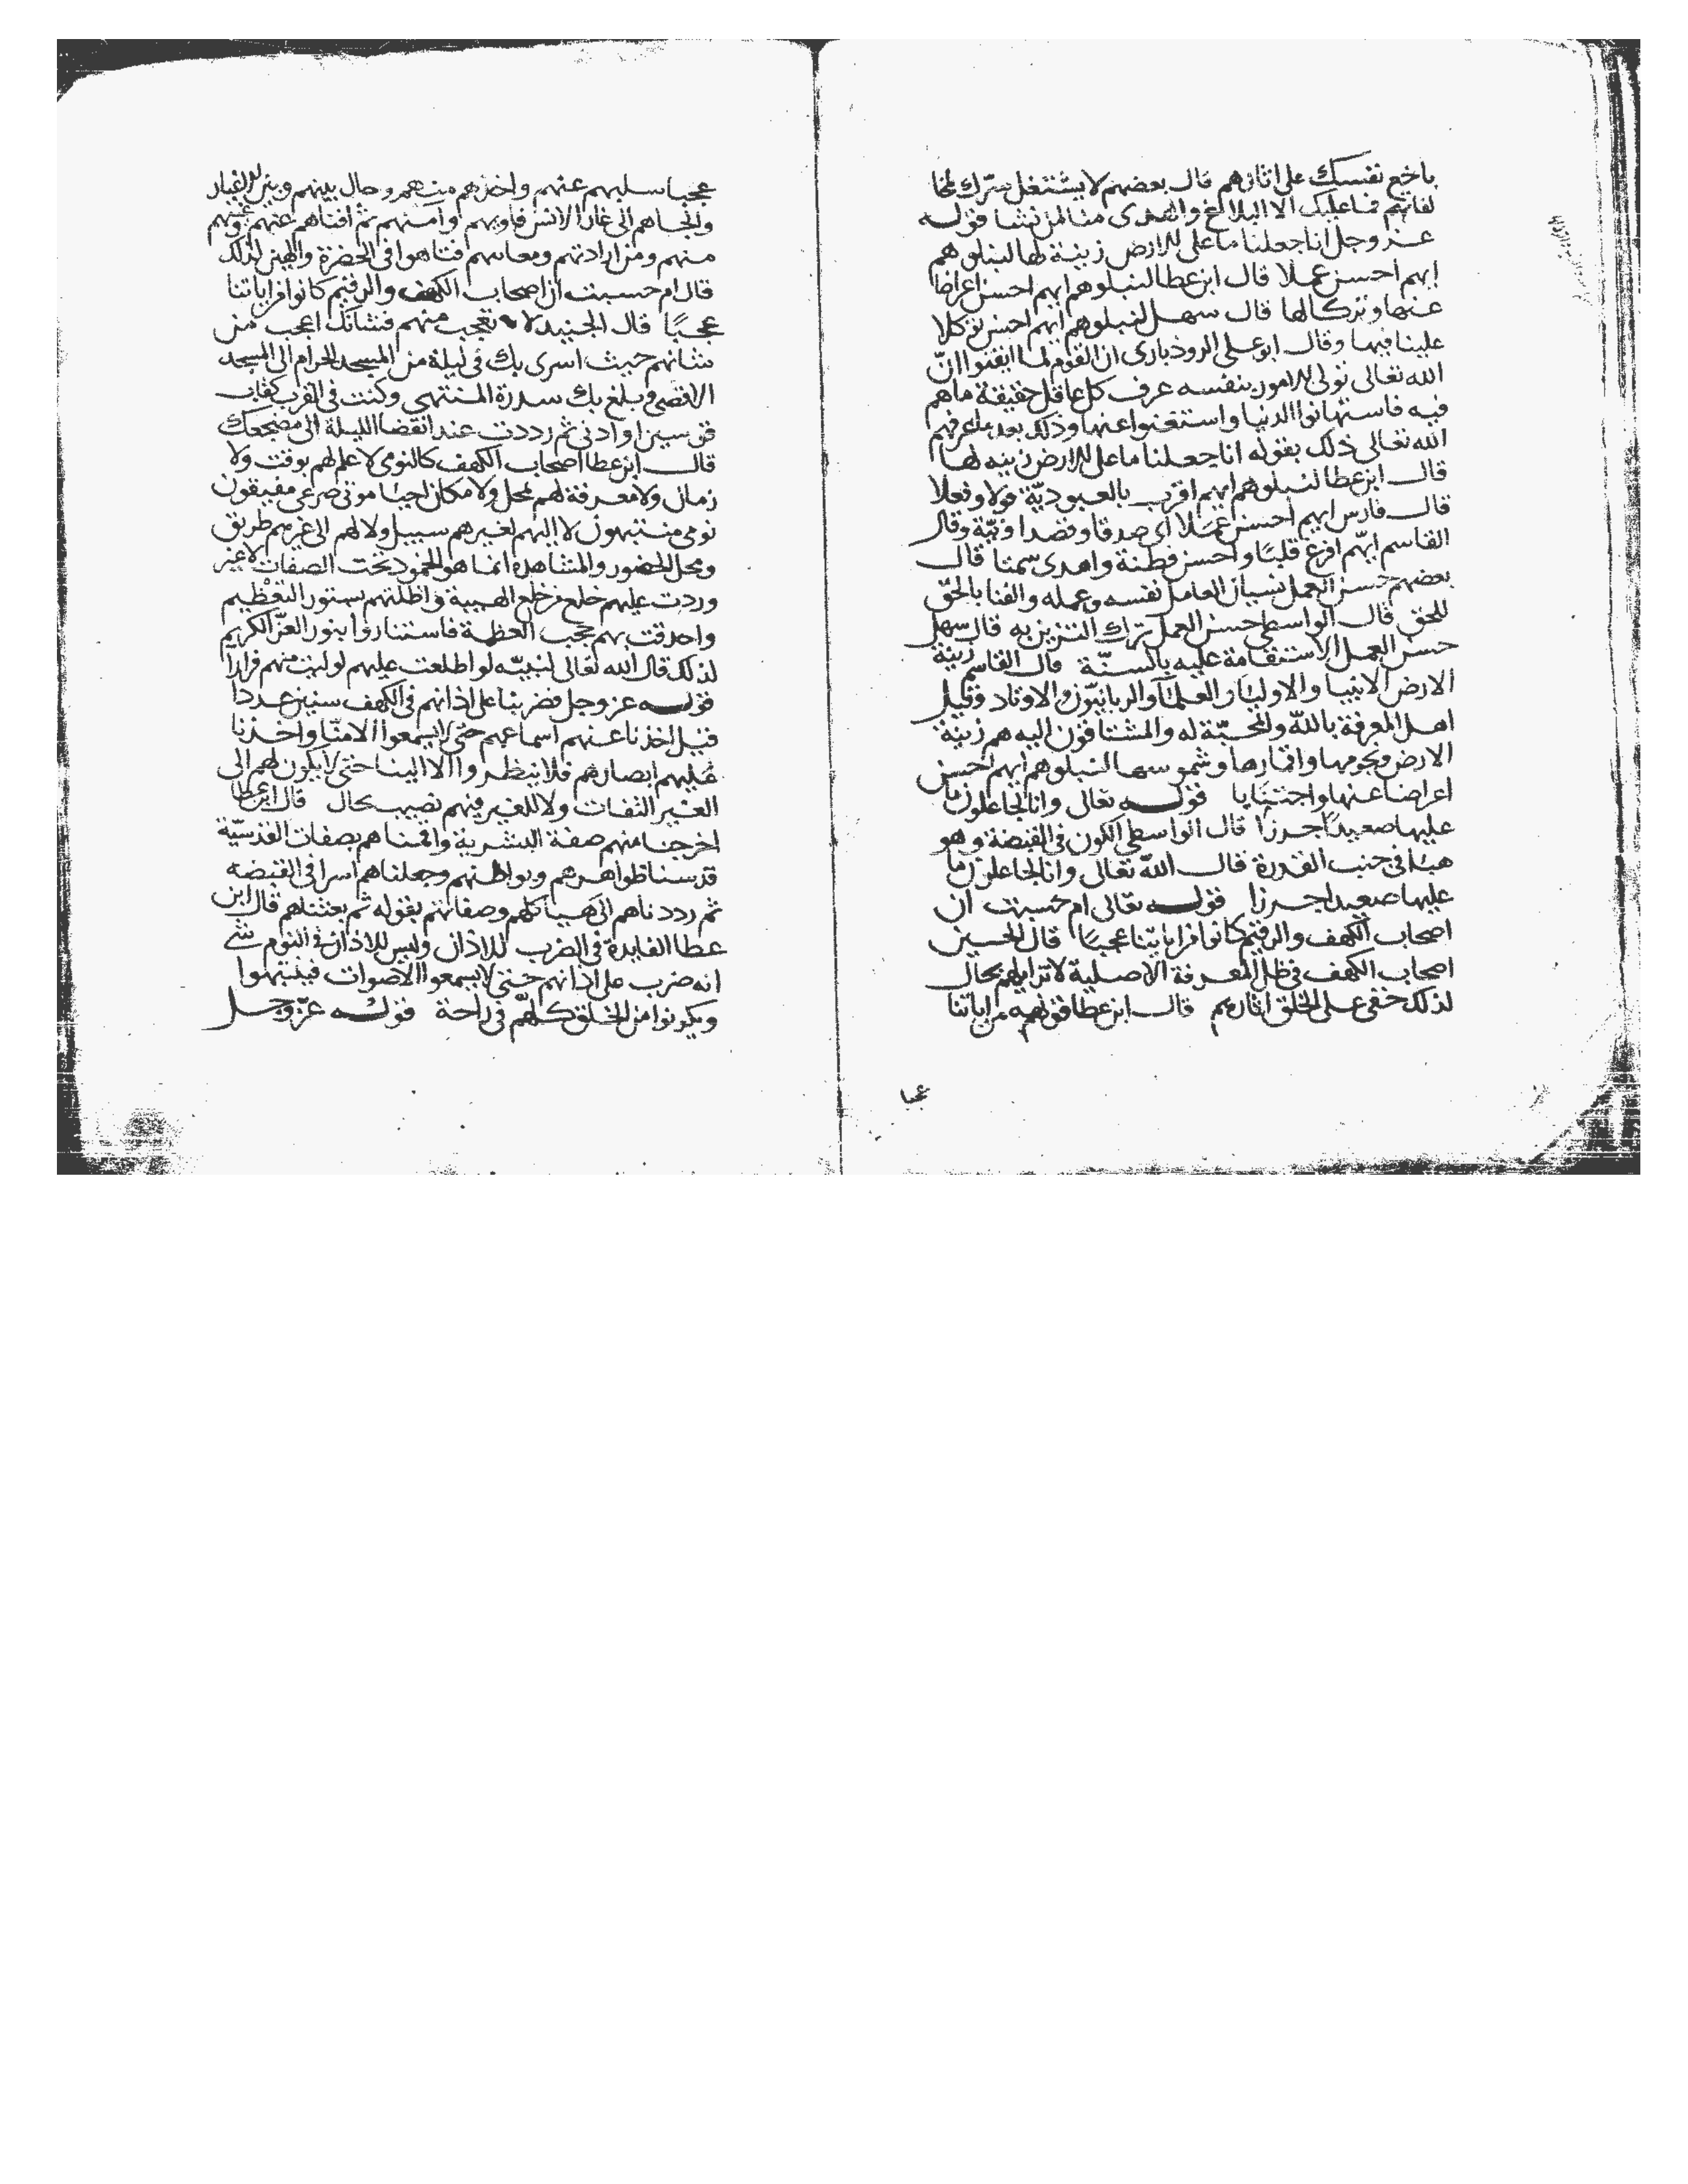 باخع نفسك على اثارهم قال بعضهم لا يشتغل سرك بمخا
لفاتهم فما عليك الا البلاغ والهدى منا لمن نشا قوله
عز وجل انا جعلنا ما على الارض زينة لها لنبلوهم
ايهم احسن عملا قال ابن عطا لنبلوهم ايهم احسن اعراضا
عنها وتركا لها قال سهل لنبلوهم ايهم احسن توكلا
علينا فيها وقال ابو على الروذبارى ان القوم لما ايقنوا انّ
الله تعالى تولى الامور بنفسه عرف كل عاقل حقيقة ما هم
فيه فاستهانوا الدنيا واستغنوا عنها وذلك بعد ما عرفهم
الله تعالى ذلك بقوله انا جعلنا ما على الارض زينه لها
قال ابن عطا لنبلوهم ايهم اقرب بالعبوديّة قولا وفعلا
قال فارس ايهم احسن عملا اى صدقا وقصدا ونيّة وقال
القاسم ايّهم افرغ قلبًا واحسن فطنة واهدى سمتا قال
بعضهم حسن العمل نسيان العامل نفسه وعمله والفنا بالحقّ
للحق قال الواسطى حسن العمل ترك التزين به قال سهل
حسن العمل الاستقامة عليه بالسنّة قال القاسم زينة
الارض الانبيا والاوليا والعلما والربانيّون والاوتاد وقيل
اهل المعرفة بالله والمحبّة له والمشتاقون اليه هم زينة
الارض ونجومها واقمارها وشموسها لنبلوهم ايهم احسن
اعراضا عنها واجتنابا قوله تعالى وانا لجاعلون ما
عليها صعيدًا جرزا قال الواسطى الكون فى القبضة وهو
هبا فى جنب القدرة قال الله تعالى وانا لجاعلون ما
عليها صعيدا جرزا قوله تعالى ام حسبت ان
اصحاب الكهف والرقيم كانوا من اياتنا عجبا قال الحسين
اصحاب الكهف فى ظل المعرفة الاصلية لا تزايلهم بحال
لذلك خفى على الخلق اثارهم قال ابن عطا قوله من اياتنا
عجبا
عجبا سلبهم عنهم واخذهم منهم وحال بينهم وبين الاغيار
والجاهم الى غار الانس فاويهم وآمنهم ثم افناهم عنهم وغيبهم
منهم ومن ارادتهم ومعانيهم فتاهوا فى الحضرة والهين لذلك
قال ام حسبت ان اصحاب الكهف والرقيم كانوا من اياتنا
عجبًا قال الجنيد لا تتعجب منهم فشانك اعجب من
شانهم حيث اسرى بك فى ليلة من المسجد الحرام الى المسجد
الاقصى وبلغ بك سدرة المنتهى وكنت فى القرب كقاب
قوسين او ادنى ثم رددت عند انقضا الليلة الى مضجعك
قال ابن عطا اصحاب الكهف كالنومى لا علم لهم بوقت ولا
زمان ولا معرفة لهم بمحل ولا مكان احيا موتى صرعى مفيقون
نومى منتبهون لا اليهم لغيرهم سبيل ولا لهم الى غيرهم طريق
ومحل الحضور والمشاهدة انما هو الخمود تحت الصفات لا غير
وردت عليهم خلع من خلع الهيبة واظلتهم ستور التعظيم
واحدقت بهم حجب العظمة فاستناروا بنور العزّ الكريم
لذلك قال الله تعالى لنبيّه لو اطلعت عليهم لوليت منهم فرارا
قوله عز وجل فضربنا على اذانهم فى الكهف سنين عددا
قيل اخذنا عنهم اسماعهم حتى لا يسمعوا الا منّا واخذنا
عليهم ابصارهم فلا ينظروا الا الينا حتى لا يكون لهم الى
الغير التفات ولا للغير فيهم نصيب بحال قال ابن عطا
اخرجنا منهم صفة البشرية واقمناهم بصفات القدسيّة
قدسنا ظواهرهم وبواطنهم وجعلناهم اسرا فى القبضه
ثم رددناهم الى هياكلهم وصفاتهم بقوله ثم بعثناهم قال ابن
عطا الفايدة فى الضرب للاذان وليس للاذان فى النوم شى
انه ضرب على اذانهم حتى لا يسمعوا الاصوات فينتبهوا
ويكونوا من الخلق كلهّم فى راحة قوله عزّ وجل